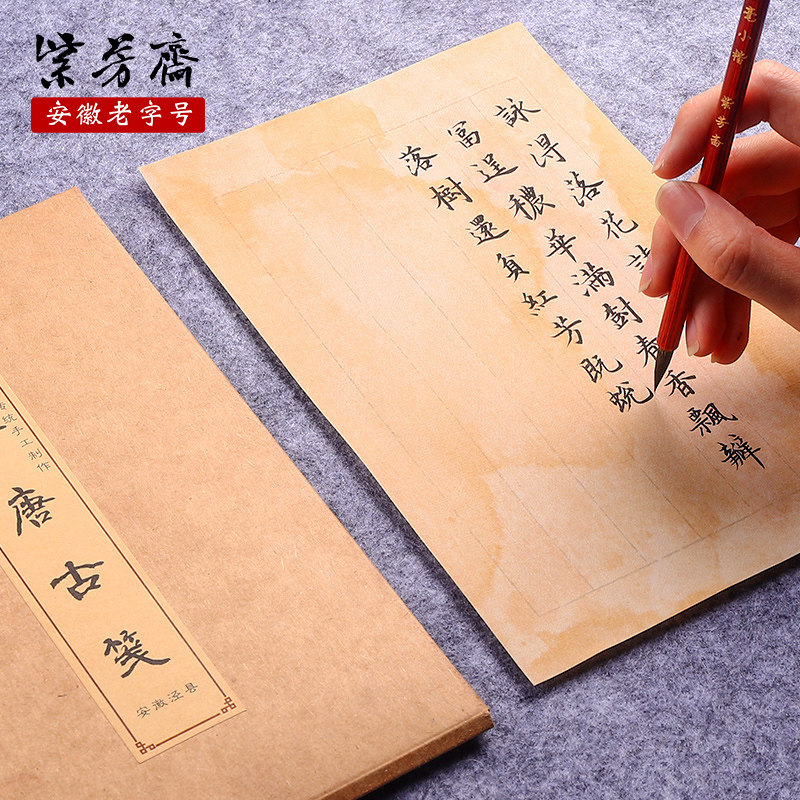 紫芳齋
安徽老字号
毫小楷 紫芳斋
詠得落花詩
富逞穠華滿樹春香飄瓣
落樹還貧紅芳既蛻
统手工制作
唐古笺
安徽泾县